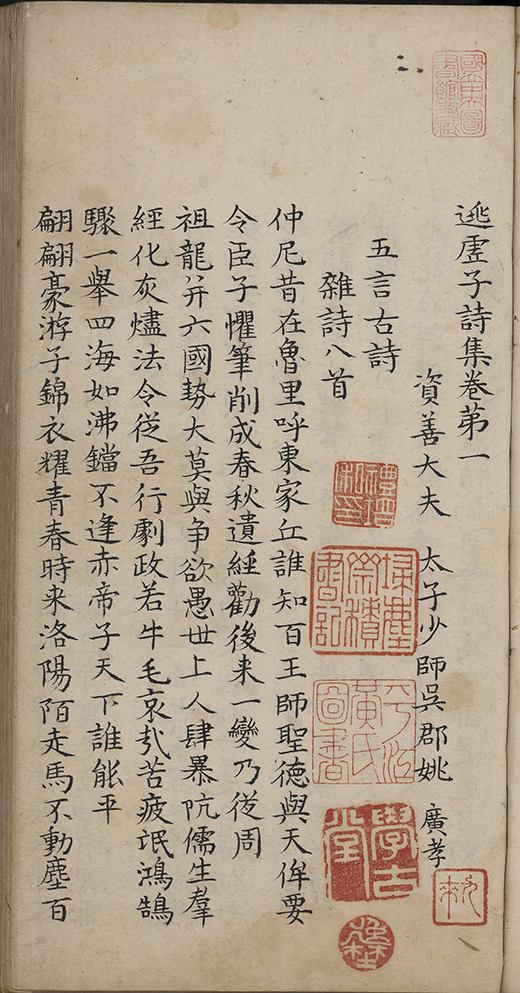 逃虛子詩集卷第一
資善大夫 太子少師吳郡姚 廣孝
五言古詩
雜詩八首
仲尼昔在魯里呼東家丘誰知百王師聖德與天侔要
令臣子懼筆削成春秋遺經勸後来一變乃從周
祖龍并六國勢大莫與争欲愚世上人肆暴阬儒生羣
經化灰燼法令從吾行劇政若牛毛哀㢤苦疲氓鴻鵠
驟一舉四海如沸鐺不逢赤帝子天下誰能平
翩翩豪游子錦衣耀青春時来洛陽陌走馬不動塵百
國立中央圖書館收藏
掃塵齋積書記
平江黃氏圖書
學古堂